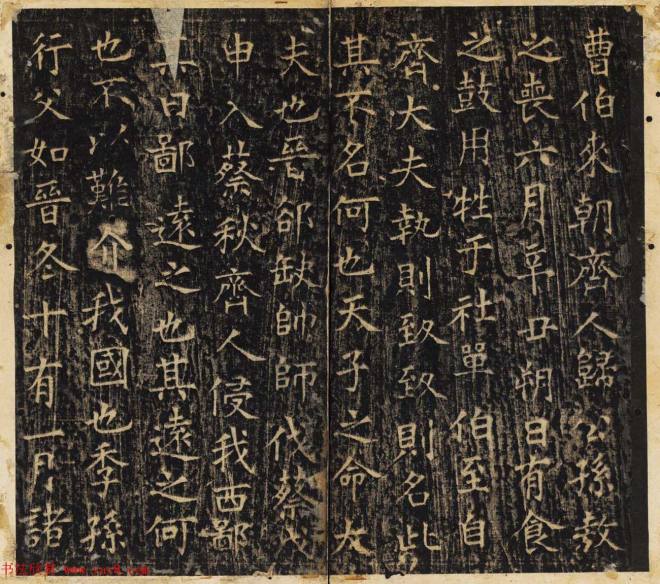 曹伯來朝齊人歸公孫敖
之喪六月辛丑朔日有食
之鼓用牲于社單伯至自
齊大夫執則致致則名此
其不名何也天子之命大
夫也晉郤缺帥師伐蔡戊
申入蔡秋齊人侵我西鄙
其曰鄙遠之也其遠之何
也不以難介我國也季孫
行父如晉冬十有一月諸
书法欣赏